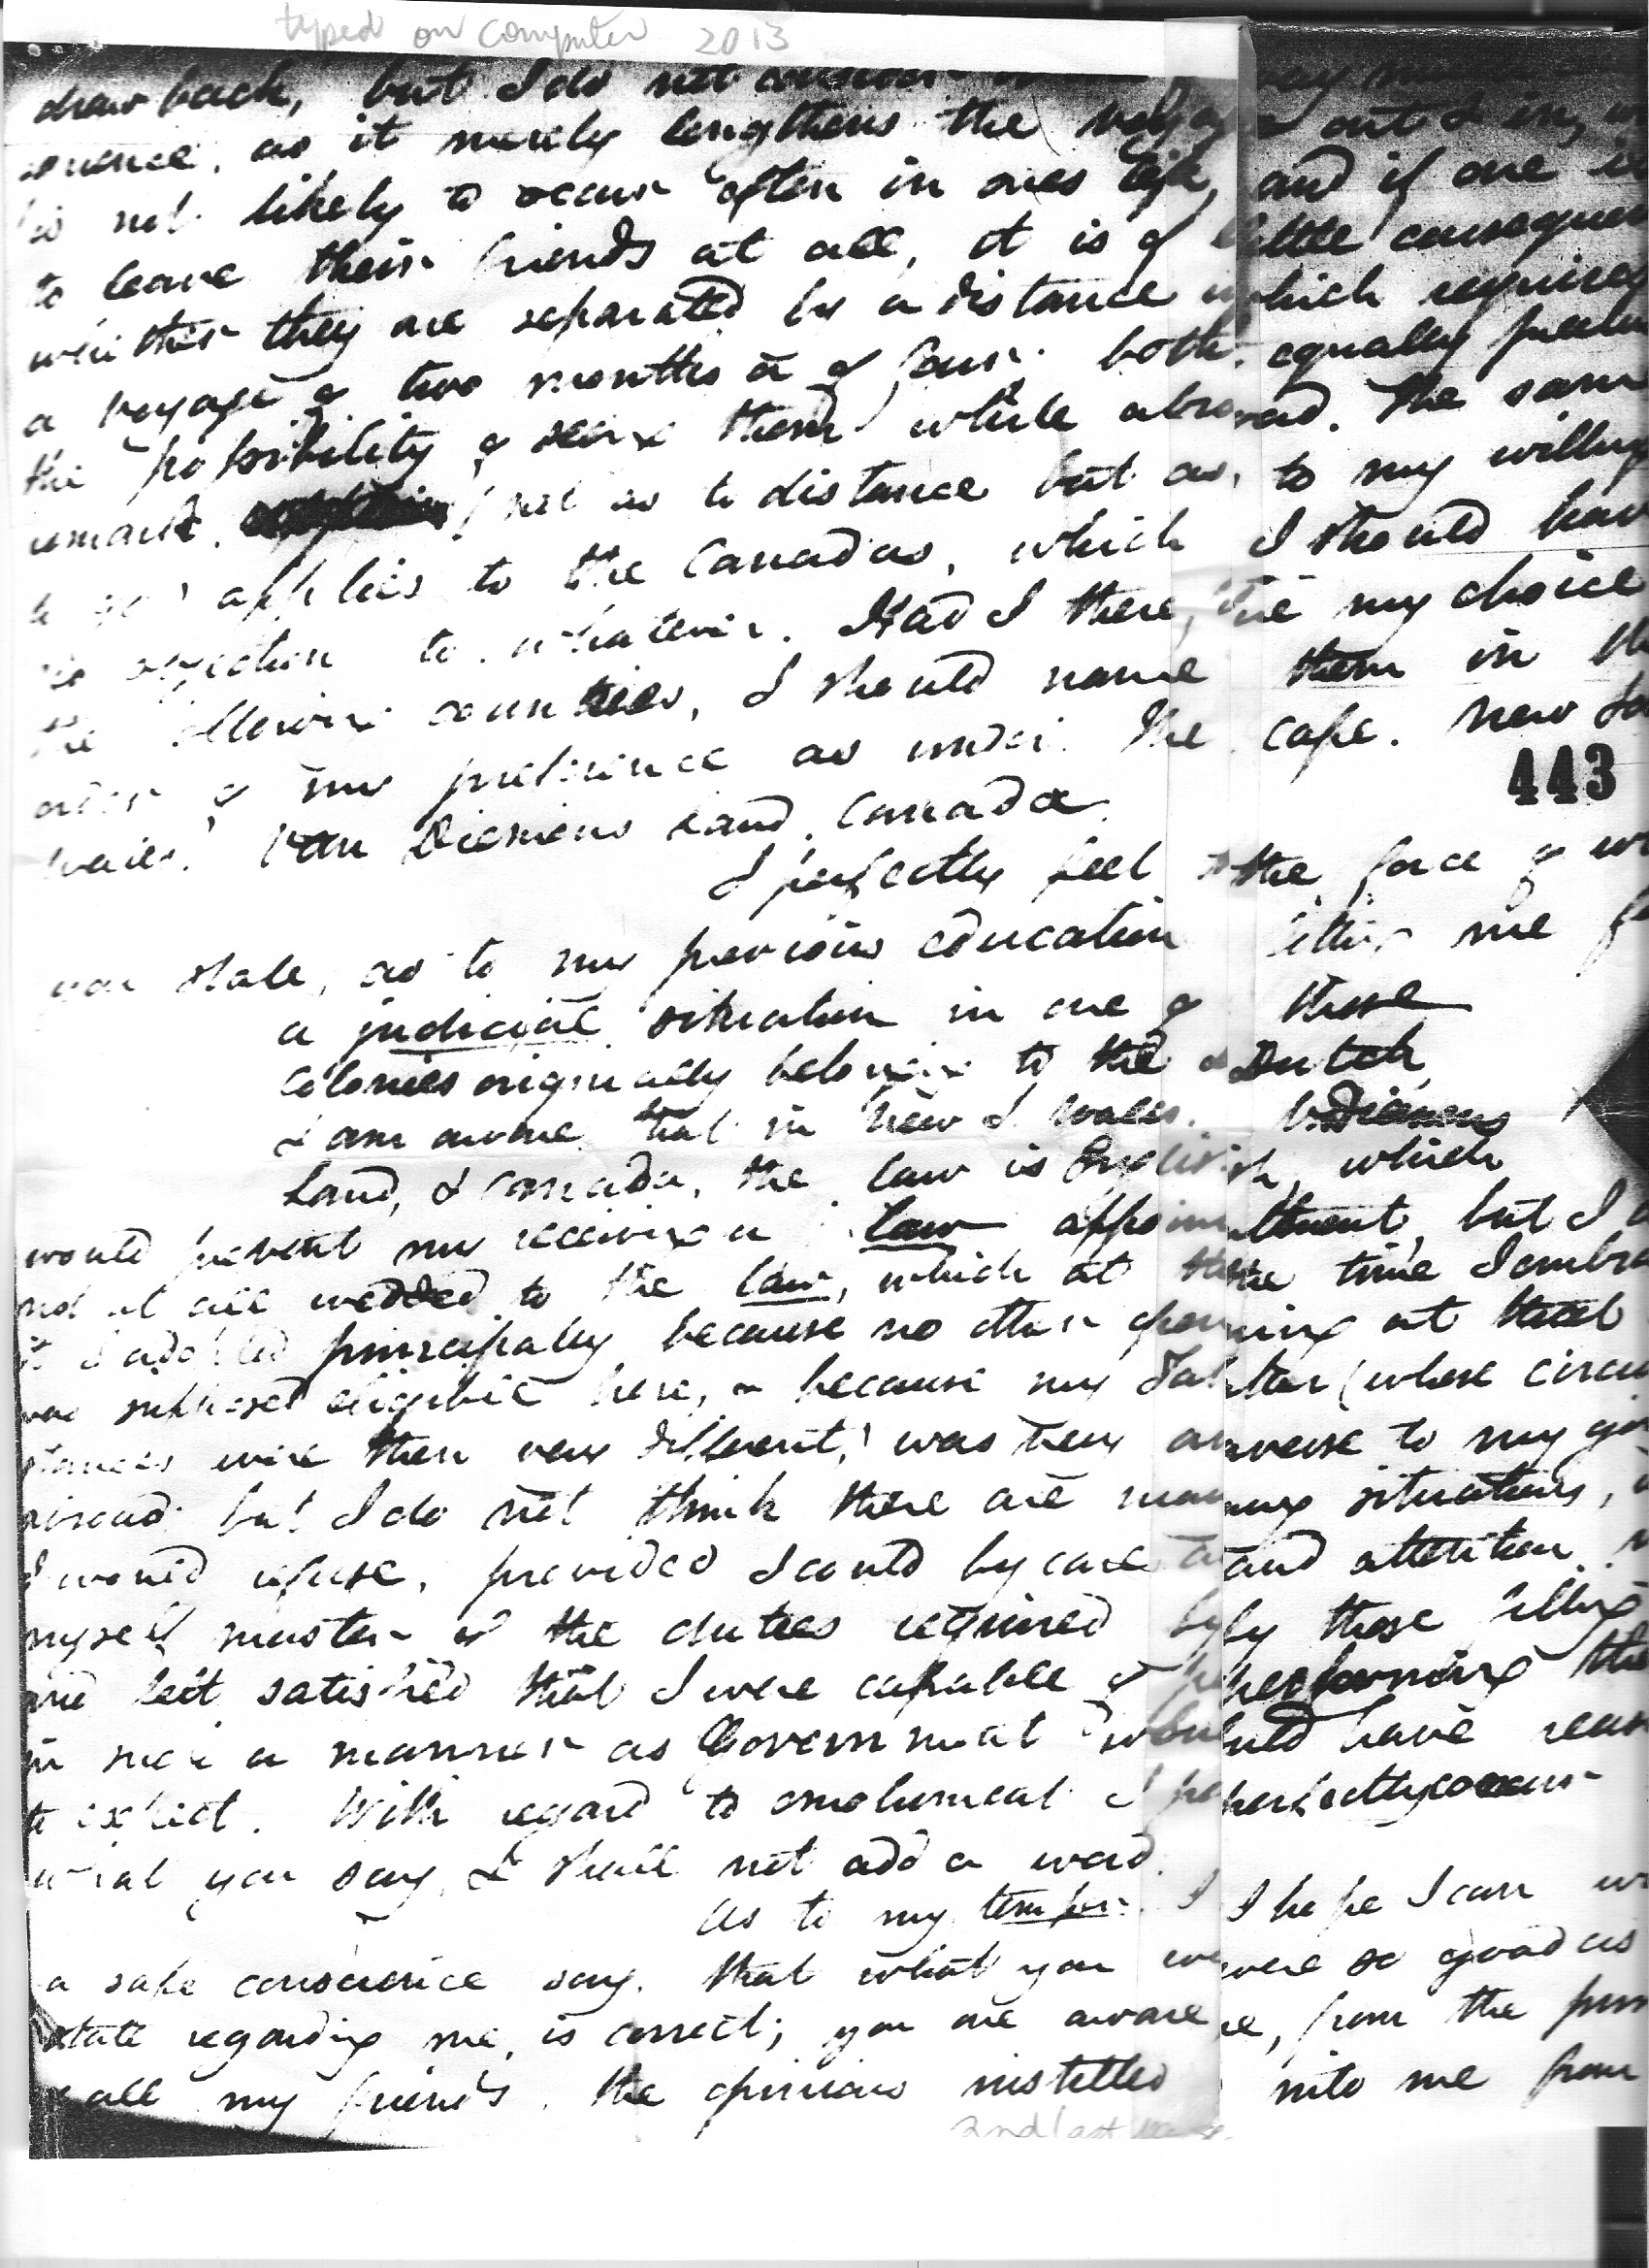 typed on computer 2013
draw back, but I do not
as it merely lengthens the voyage out & in,
is not likely to occur often in ones life, and if one is
to leave their friends at all, it is of little consequen
whither they are separated by a distance which requires
a voyage of two months or of four. both equally
the possibility of seeing them while abroad. The same
remark, (not as to distance but as, to my willing
applies to the Canadas, which I should have
no objection to whatever. Had I there, the my choice
the following counties, I should name them in the
order of my preference as under. The cape. New So
443
wales. Van Diemens Land. Canada.
I perfectly feel the force of
you state, as to my previous education fitting me
a judicial situation in one of those
Colonies originally belonging to the Dutch
I am aware that in New S. Wales. V. Diemens
Land, & Canada, the law is English, which
would prevent my receiving a law appointment, but I
not at all wedded to the law, which at the time I embra
it I adopted principally because no other opening at that
was supposed eligible here, & because my Father (whose circu
stances were then very different,) was very averse to my go
abroad: but I do not think there are many situations,
I would refuse, provided I could by care and attention
myself master of the duties required by those filling
and felt satisfied that I were capable of performing the
in such a manner as Government would have reas
to expect. With regard to emolument I perfectly concur
what you say, & shall not add a word.
As to my temper. I hope I can
a safe conscience say. that what you were so good as
state regarding me, is correct; you are aware, from the
all my friends. the opinions instilled into me from
2nd last